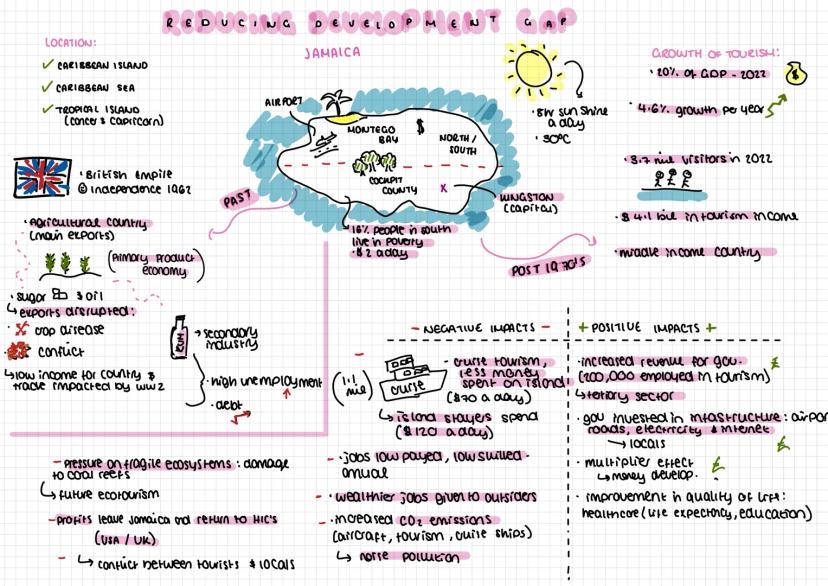 REDUCING DEVELOPMENT GAP
JAMAICA
LOCATION:
✓ CARIBBEAN ISLAND
✓ CARIBBEAN SEA
✓ TROPICAL ISLAND
(cancer & capricorn)
· British Empire
independence 1962
PAST
· Agricultural country
(main exports)
(Primary product
economy)
· sugar & oil
↳ exports disrupted:
crop disease
conflict
↳ low income for country &
trade impacted by WW2
RUM
→ secondary
industry
· high unemployment
· debt
AIRPORT
MONTEGO
BAY
$
NORTH/
SOUTH
COCKPIT
COUNTY
x
KINGSTON
(capital)
16% people in south
live in poverty
· $2 a day
· 8hr sunshine
a day
· 30°C
POST 1970'S
GROWTH OF TOURISM:
· 20% of GDP - 2022
$
· 4.6% growth per year
· 3.7 mil visitors in 2022
· $4.1 bil in tourism income
· middle income country
- NEGATIVE IMPACTS -
(1.1
mil)
cruise
- cruise tourism,
less money
spent on island
($70 a day)
↳ island stayers spend
($120 a day)
- · jobs low payed, low skilled.
annual
- · wealthier jobs given to outsiders
- · increased CO2 emissions
(aircraft, tourism, cruise ships)
↳ noise pollution
- pressure on fragile ecosystems: damage
to coral reefs
↳ future ecotourism
- profits leave Jamaica and return to HIC's
(USA / UK)
- ↳ conflict between tourists & locals
+ POSITIVE IMPACTS +
· increased revenue for gov. £
(200,000 employed in tourism)
↳ tertiary sector
· gov invested in infrastructure: airpor
roads, electricity & internet
→ locals £
· multiplier effect £
↳ money develop.
· improvement in quality of life:
healthcare (life expectancy, education)